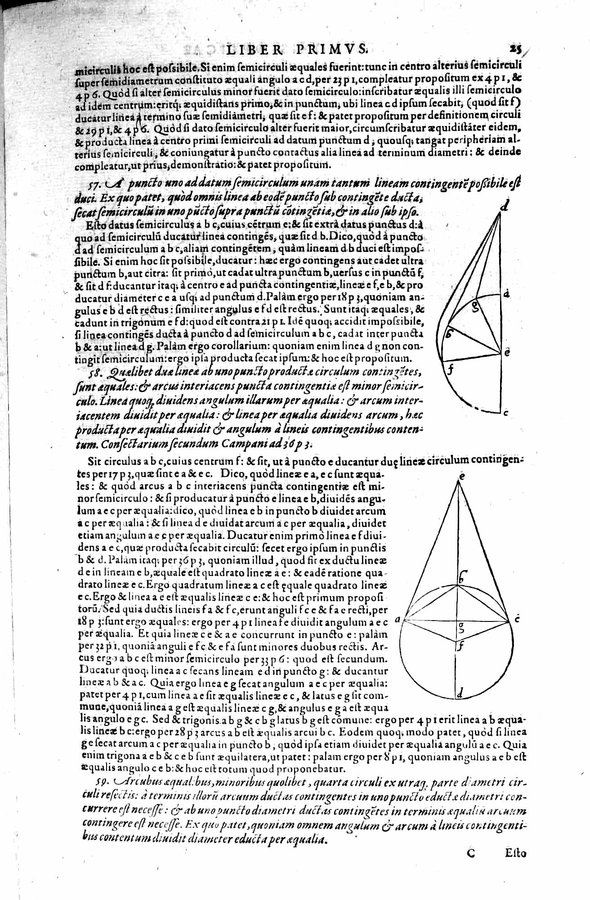 LIBER PRIMVS. 25
micirculis hoc est possibile. Si enim semicirculi æquales fuerint: tunc in centro alterius semicirculi
super semidiametrum constituto æquali angulo a c d, per 23 p 1, compleatur propositum ex 4 p 1, &
4 p 6. Quòd si alter semicirculus minor fuerit dato semicirculo: inscribatur æqualis illi semicirculo
ad idem centrum: eritq; æquidistans primo, & in punctum, ubi linea c d ipsum secabit, (quod sit f)
ducatur linea à termino suæ semidiametri, quæ sit e f: & patet propositum per definitionem circuli
& 29 p 1, & 4 p 6. Quòd si dato semicirculo alter fuerit maior, circumscribatur æquidistãter eidem,
& producta linea à centro primi semicirculi ad datum punctum d, quousq; tangat peripheriam al-
terius semicirculi, & coniungatur à puncto contactus alia linea ad terminum diametri: & deinde
compleatur, ut prius, demonstratio: & patet propositum.
57. A puncto uno ad datum semicirculum unam tantum lineam contingentẽ possibile est
duci. Ex quo patet, quòd omnis linea ab eodẽ puncto sub contingẽte ducta,
secat semicirculũ in uno pũcto supra punctũ cõtingẽtiæ, & in alio sub ipso.
Esto datus semicirculus a b c, cuius cẽtrum e: & sit extrà datus punctus d: à
quo ad semicirculũ ducatur linea contingẽs, quæ sit d b. Dico, quòd à puncto
d ad semicirculum a b c, aliam contingẽtem, quàm lineam d b duci est impos-
sibile. Si enim hoc sit possibile, ducatur: hæc ergo contingens aut cadet ultra
punctum b, aut citra: sit primò, ut cadat ultra punctum b, uersus c in punctũ f,
& sit d f: ducantur itaq; à centro e ad puncta contingentiæ, lineæ e f, e b, & pro
ducatur diameter c e a usq; ad punctum d. Palàm ergo per 18 p 3, quoniam an-
gulus e b d est rectus: similiter angulus e f d est rectus. Sunt itaq; æquales, &
cadunt in trigonum e f d: quod est contra 21 p 1. Idẽ quoq; accidit impossibile,
si linea contingẽs ducta à puncto d ad semicirculum a b c, cadat inter puncta
b & a: ut linea d g. Palàm ergo corollarium: quoniam enim linea d g non con-
tingit semicirculum: ergo ipsa producta secat ipsum: & hoc est propositum.
58. Quælibet duæ lineæ ab uno puncto productæ circulum contingẽtes,
sunt æquales: & arcus interiacens puncta contingentiæ est minor semicir-
culo. Linea quoq; diuidens angulum illarum per æqualia: & arcum inter-
iacentem diuidit per æqualia: & linea per æqualia diuidens arcum, hæc
producta per æqualia diuidit & angulum à lineis contingentibus conten-
tum. Consectarium secundum Campani ad 36 p 3.
Sit circulus a b c, cuius centrum f: & sit, ut à puncto e ducantur duę lineæ circulum contingen-
tes per 17 p 3, quæ sint e a & e c. Dico, quòd lineæ e a, e c sunt æqua-
les: & quòd arcus a b c interiacens puncta contingentiæ est mi-
nor semicirculo: & si producatur à puncto e linea e b, diuidẽs angu-
lum a e c per æqualia: dico, quòd linea e b in puncto b diuidet arcum
a c per æqualia: & si linea d e diuidat arcum a c per æqualia, diuidet
etiam angulum a e c per æqualia. Ducatur enim primò linea e f diui-
dens a e c, quæ producta secabit circulũ: secet ergo ipsum in punctis
b & d. Palàm itaq; per 36 p 3, quoniam illud, quod fit ex ductu lineæ
d e in lineam e b, æquale est quadrato lineæ a e: & eadẽ ratione qua-
drato lineæ e c. Ergo quadratum lineæ a e est ęquale quadrato lineæ
e c. Ergo & linea a e est æqualis lineæ e c: & hoc est primum proposi-
torũ. Sed quia ductis lineis f a & f c, erunt anguli f c e & f a e recti, per
18 p 3: sunt ergo æquales: ergo per 4 p 1 linea f e diuidit angulum a e c
per æqualia. Et quia lineæ c e & a e concurrunt in puncto e: palàm
per 32 p 1, quoniã anguli e f c & e f a sunt minores duobus rectis. Ar-
cus ergo a b c est minor semicirculo per 33 p 6: quod est secundum.
Ducatur quoq; linea a c secans lineam e d in puncto g: & ducantur
lineæ a b & a c. Quia ergo linea e g secat angulum a e c per æqualia:
patet per 4 p 1, cum linea a e sit æqualis lineæ e c, & latus e g sit com-
mune, quoniã linea a g est æqualis lineæ c g, & angulus e g a est æqua
lis angulo e g c. Sed & trigonis a b g & c b g latus b g est comune: ergo per 4 p 1 erit linea a b æqua-
lis lineæ b c: ergo per 28 p 3 arcus a b est æqualis arcui b c. Eodem quoq; modo patet, quòd si linea
g e secat arcum a c per æqualia in puncto b, quòd ipsa etiam diuidet per æqualia angulũ a e c. Quia
enim trigona a e b & c e b sunt æquilatera, ut patet: palàm ergo per 8 p 1, quoniam angulus a e b est
æqualis angulo c e b: & hoc est totum quod proponebatur.
59. Arcubus æqualibus, minoribus quolibet, quarta circuli ex utraq; parte diametri cir-
culi resectis: à terminis illorũ arcuum ductas contingentes in uno puncto eductæ diametri con-
currere est necesse: & ab uno puncto diametri ductas contingẽtes in terminis æqualiũ arcuum
contingere est necesse. Ex quo patet, quoniam omnem angulum & arcum à lineis contingenti-
bus contentum diuidit diameter educta per æqualia.
C Esto
d
a
g
b
e
f
c
e
b
a
g
c
f
d